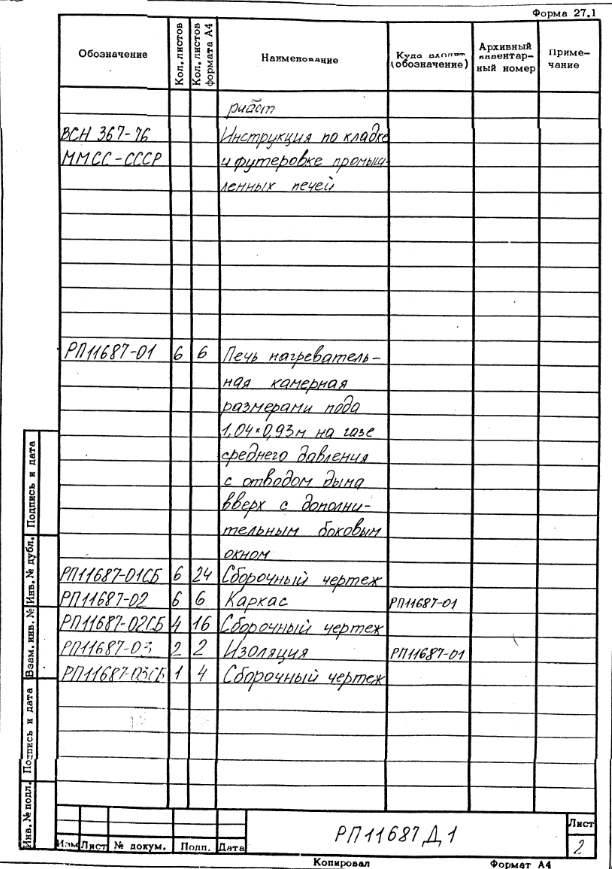 Форма 27.1
Обозначение Кол. листов Кол. листов формата А4 Наименование Куда входит (обозначение) Архивный инвентарный номер Примечание
ВСН 367-76 Инструкция по кладке
ММСС-СССР и футеровке промыш
ленных печей
РП11687-01 6 6 Печь нагреватель-
ная камерная
размерами пода
1,04×0,93м на газе
среднего давления
с отводом дыма
вверх с дополни-
тельным боковым
окном
РП11687-01СБ 6 24 Сборочный чертеж
РП11687-02 6 6 Каркас РП11687-01
РП11687-02СБ 4 16 Сборочный чертеж
РП11687-03 2 2 Изоляция РП11687-01
РП11687-03СБ 1 4 Сборочный чертеж
Инв. № подл. Подпись и дата Взам. инв. № Инв. № дубл. Подпись и дата
Изм Лист № докум. Подп. Дата
РП11687 Д1
Лист
2
Копировал Формат А4